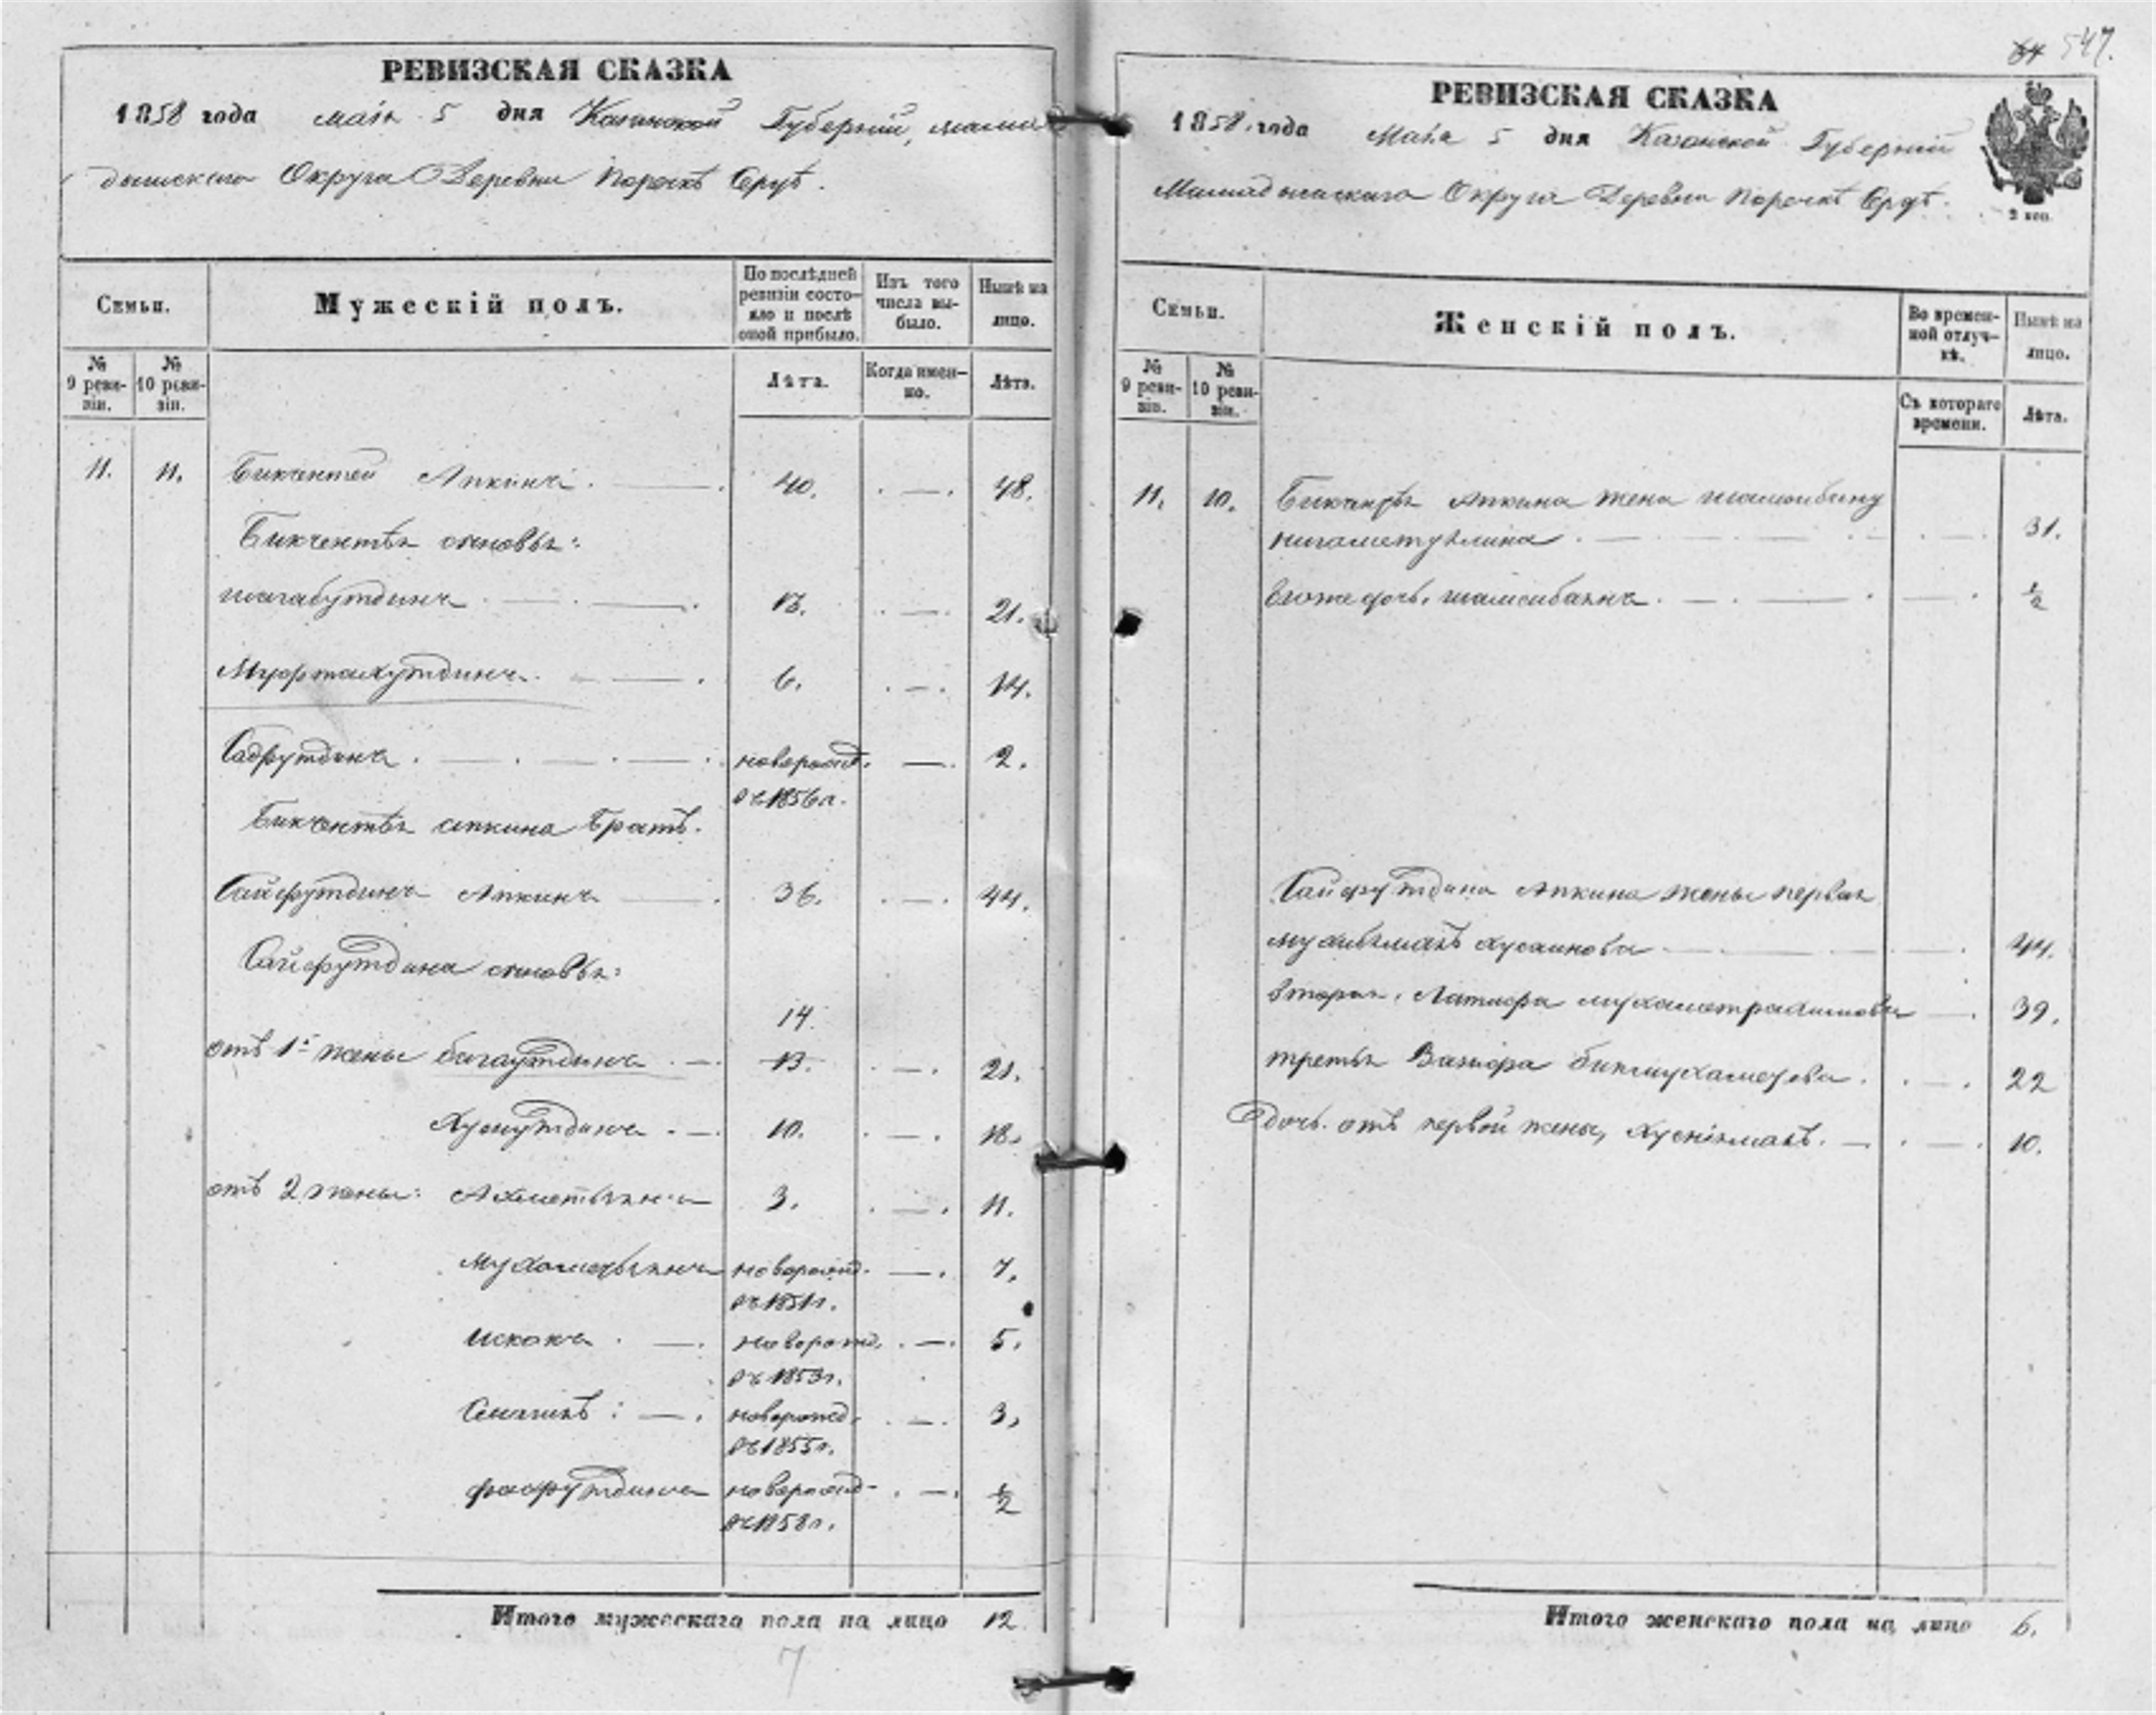 547.
РЕВИЗСКАЯ СКАЗКА
1858 года маія 5 дня Казанской Губерніи, мама
дышскаго Округа Деревни Поречь
Семьи.
Мужескій полъ.
По послѣдней ревизіи состояло и послѣ оной прибыло.
Изъ того числа выбыло.
Нынѣ на лицо.
№ 9 ревизіи.
№ 10 ревизіи.
Лѣта.
Когда именно.
Лѣта.
11. 11. Бикчентей Апкинъ. 40. 48.
Бикчентѣя сыновья:
шагабутдинъ 13. 21.
Муфтахутдинъ. 6. 14.
Садрутдинъ. новорожд. 2.
въ 1856 г.
Бикчентѣя апкина братъ.
Сайфутдинъ Апкинъ 36. 44.
Сайфутдина сыновья:
14.
отъ 1й жены багаутдинъ 13. 21.
Хуснутдинъ 10. 18.
отъ 2 жены: Ахметьянъ 3. 11.
Мухаметьянъ новорожд. 7.
въ 1851 г.
Исхакъ новорожд. 5.
въ 1853 г.
новорожд. 3.
въ 1855 г.
фахрутдинъ новорожд. 1/2
въ 1858 г.
Итого мужескаго пола на лицо 12.
7
РЕВИЗСКАЯ СКАЗКА
1858 года Маія 5 дня Казанской Губерніи
Мамадышскаго Округа Деревни Поречь
2 коп.
Семьи.
Женскій полъ.
Во временной отлучкѣ.
Нынѣ на лицо.
№ 9 ревизіи.
№ 10 ревизіи.
Съ котораго времени.
Лѣта.
11. 10. Бикчентѣя Апкина жена
нигаметуллина 31.
Евоже дочь, 1/2
Сайфутдина Апкина жены первая
Хусаинова 44.
вторая, Латифа мухаметрахимова 39.
третья Вазифа бикмухаметова. 22
Дочь отъ первой жены, Хусніямалъ. 10.
Итого женскаго пола на лицо 6.